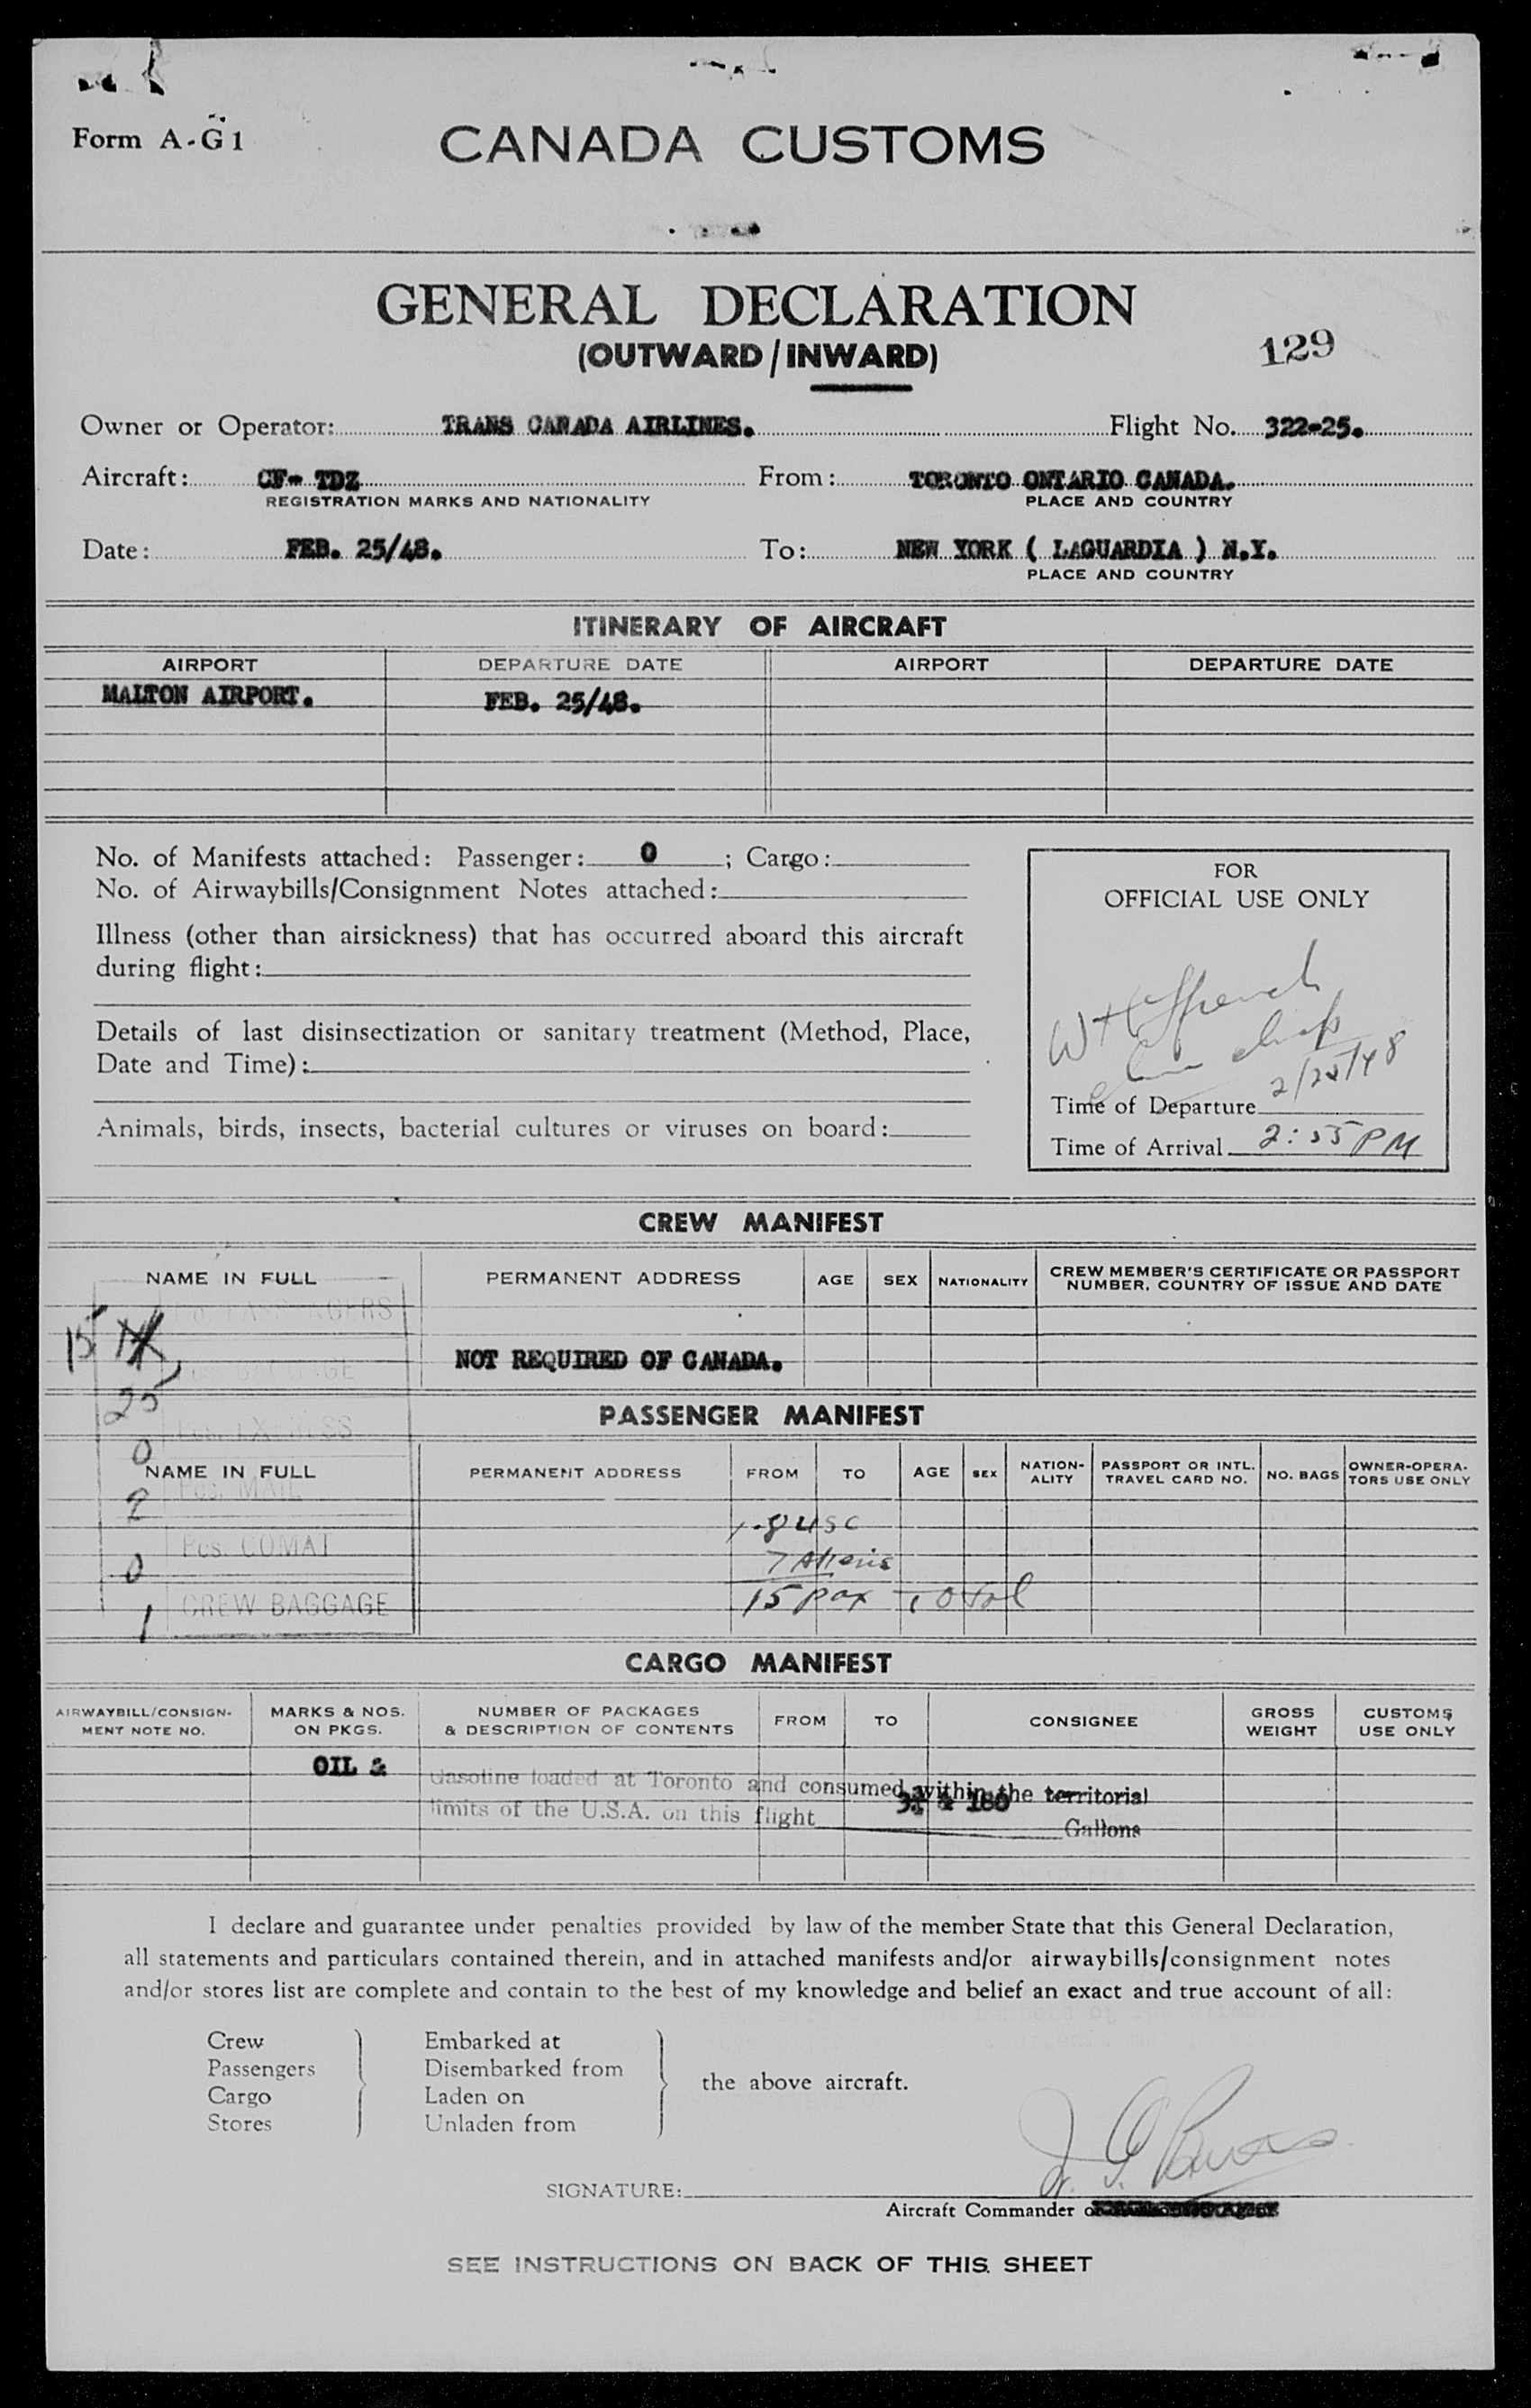 Form A-G1
CANADA CUSTOMS
GENERAL DECLARATION
(OUTWARD/INWARD)
129
Owner or Operator: TRANS CANADA AIRLINES. Flight No. 322-25.
Aircraft: CF- TDZ From: TORONTO ONTARIO CANADA.
REGISTRATION MARKS AND NATIONALITY PLACE AND COUNTRY
Date: FEB. 25/48. To: NEW YORK ( LAGUARDIA ) N.Y.
PLACE AND COUNTRY
ITINERARY OF AIRCRAFT
AIRPORT DEPARTURE DATE AIRPORT DEPARTURE DATE
MALTON AIRPORT. FEB. 25/48.
No. of Manifests attached: Passenger: 0 ; Cargo:
No. of Airwaybills/Consignment Notes attached:
Illness (other than airsickness) that has occurred aboard this aircraft
during flight:
Details of last disinsectization or sanitary treatment (Method, Place,
Date and Time):
Animals, birds, insects, bacterial cultures or viruses on board:
FOR
OFFICIAL USE ONLY
2/25/48
Time of Departure
Time of Arrival 2:55 PM
CREW MANIFEST
NAME IN FULL PERMANENT ADDRESS AGE SEX NATIONALITY CREW MEMBER'S CERTIFICATE OR PASSPORT NUMBER, COUNTRY OF ISSUE AND DATE
15
NOT REQUIRED OF CANADA.
25
PASSENGER MANIFEST
0
NAME IN FULL PERMANENT ADDRESS FROM TO AGE SEX NATION-ALITY PASSPORT OR INTL. TRAVEL CARD NO. NO. BAGS OWNER-OPERA-TORS USE ONLY
2 Pcs. MAIL
8 USC
0 Pcs. COMAT
7 Aliens
1 CREW BAGGAGE
15 pax Total
CARGO MANIFEST
AIRWAYBILL/CONSIGN-MENT NOTE NO. MARKS & NOS. ON PKGS. NUMBER OF PACKAGES & DESCRIPTION OF CONTENTS FROM TO CONSIGNEE GROSS WEIGHT CUSTOMS USE ONLY
OIL & Gasoline loaded at Toronto and consumed within the territorial
limits of the U.S.A. on this flight 180
Gallons
I declare and guarantee under penalties provided by law of the member State that this General Declaration,
all statements and particulars contained therein, and in attached manifests and/or airwaybills/consignment notes
and/or stores list are complete and contain to the best of my knowledge and belief an exact and true account of all:
Crew Embarked at
Passengers Disembarked from
the above aircraft.
Cargo Laden on
Stores Unladen from
SIGNATURE:
Aircraft Commander
SEE INSTRUCTIONS ON BACK OF THIS SHEET